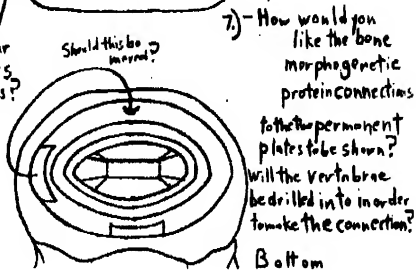 7.) - How would you
like the bone
morphogenetic
protein connections
to the two permanent
plates to be shown?
will the vertabrae
be drilled into in order
to make the connection?
Bottom
Should this be
moved?
s?